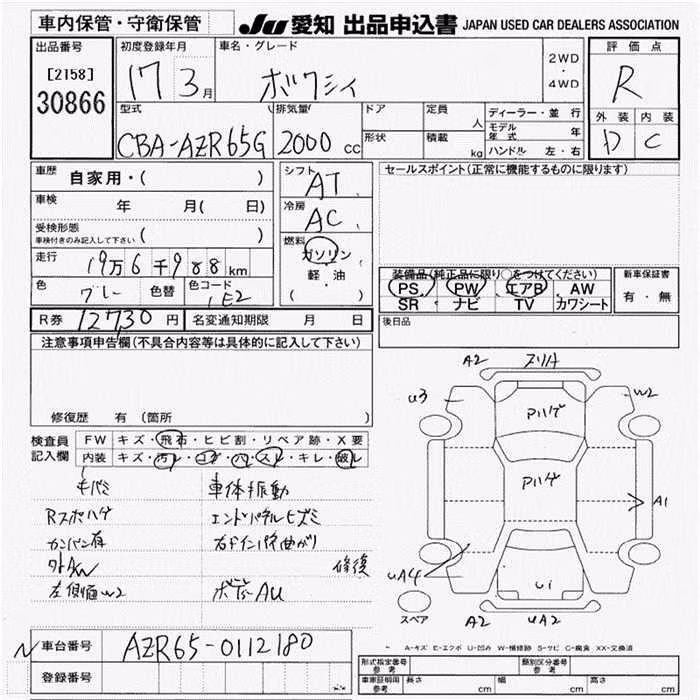 車内保管・守衛保管
JU 愛知 出品申込書 JAPAN USED CAR DEALERS ASSOCIATION
出品番号
[2158]
30866
初度登録年月
17 3月
車名・グレード
ボクシィ
2WD
・
4WD
評価点
R
外装 内装
D C
型式
CBA-AZR65G
排気量
2000 cc
ドア
形状
定員
人
積載
kg
ディーラー・並行
モデル年式 年
ハンドル 左・右
車歴
自家用・( )
車検
年 月( 日)
受検形態
車検付きのみ記入して下さい ( )
走行
19万6千988km
色
グレー
色替
色コード
1E2
シフト
AT
冷房
AC
燃料
ガソリン
軽・油
( )
セールスポイント(正常に機能するものに限ります)
装備品(純正品に限り○をつけてください)
PS PW エアB AW
SR ナビ TV カワシート
新車保証書
有・無
後日品
R券 12730円
名変通知期限 月 日
注意事項申告欄(不具合内容等は具体的に記入して下さい)
修復歴 有(箇所 )
検査員
記入欄
FW キズ・飛石・ヒビ割・リペア跡・X要
内装 キズ・汚レ・コゲ・ハ・スレ・キレ・破レ
キバミ
車体振動
Rスポハゲ
エンドパネルヒズミ
カンバン有
右インパネ曲がり
外AW
修復
左側面W2
ボデーAU
A2
スリA
U3
W2
Pハゲ
Pハゲ
A1
UA4
U1
スペア
A2
UA2
A-キズ E-エクボ U-凹み W-補修跡 S-サビ C-腐食 XX-交換済
N
車台番号
AZR65-0112180
登録番号
形式指定番号
参考
類別区分番号
参考
車庫証明用
参考
長さ cm
幅 cm
高さ cm